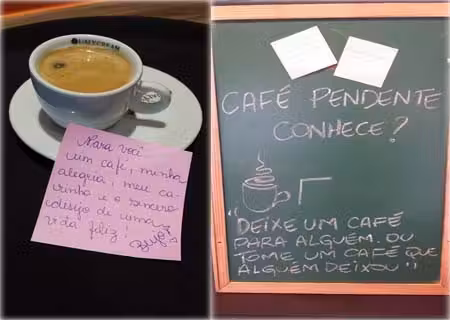 UMYCREAM
Para você
um café, minha
alegria, meu ca-
rinho e o sincero
desejo de uma
vida feliz!
CAFÉ PENDENTE
CONHECE?
"DEIXE UM CAFÉ
PARA ALGUÉM. OU
TOME UM CAFÉ QUE
ALGUÉM DEIXOU"